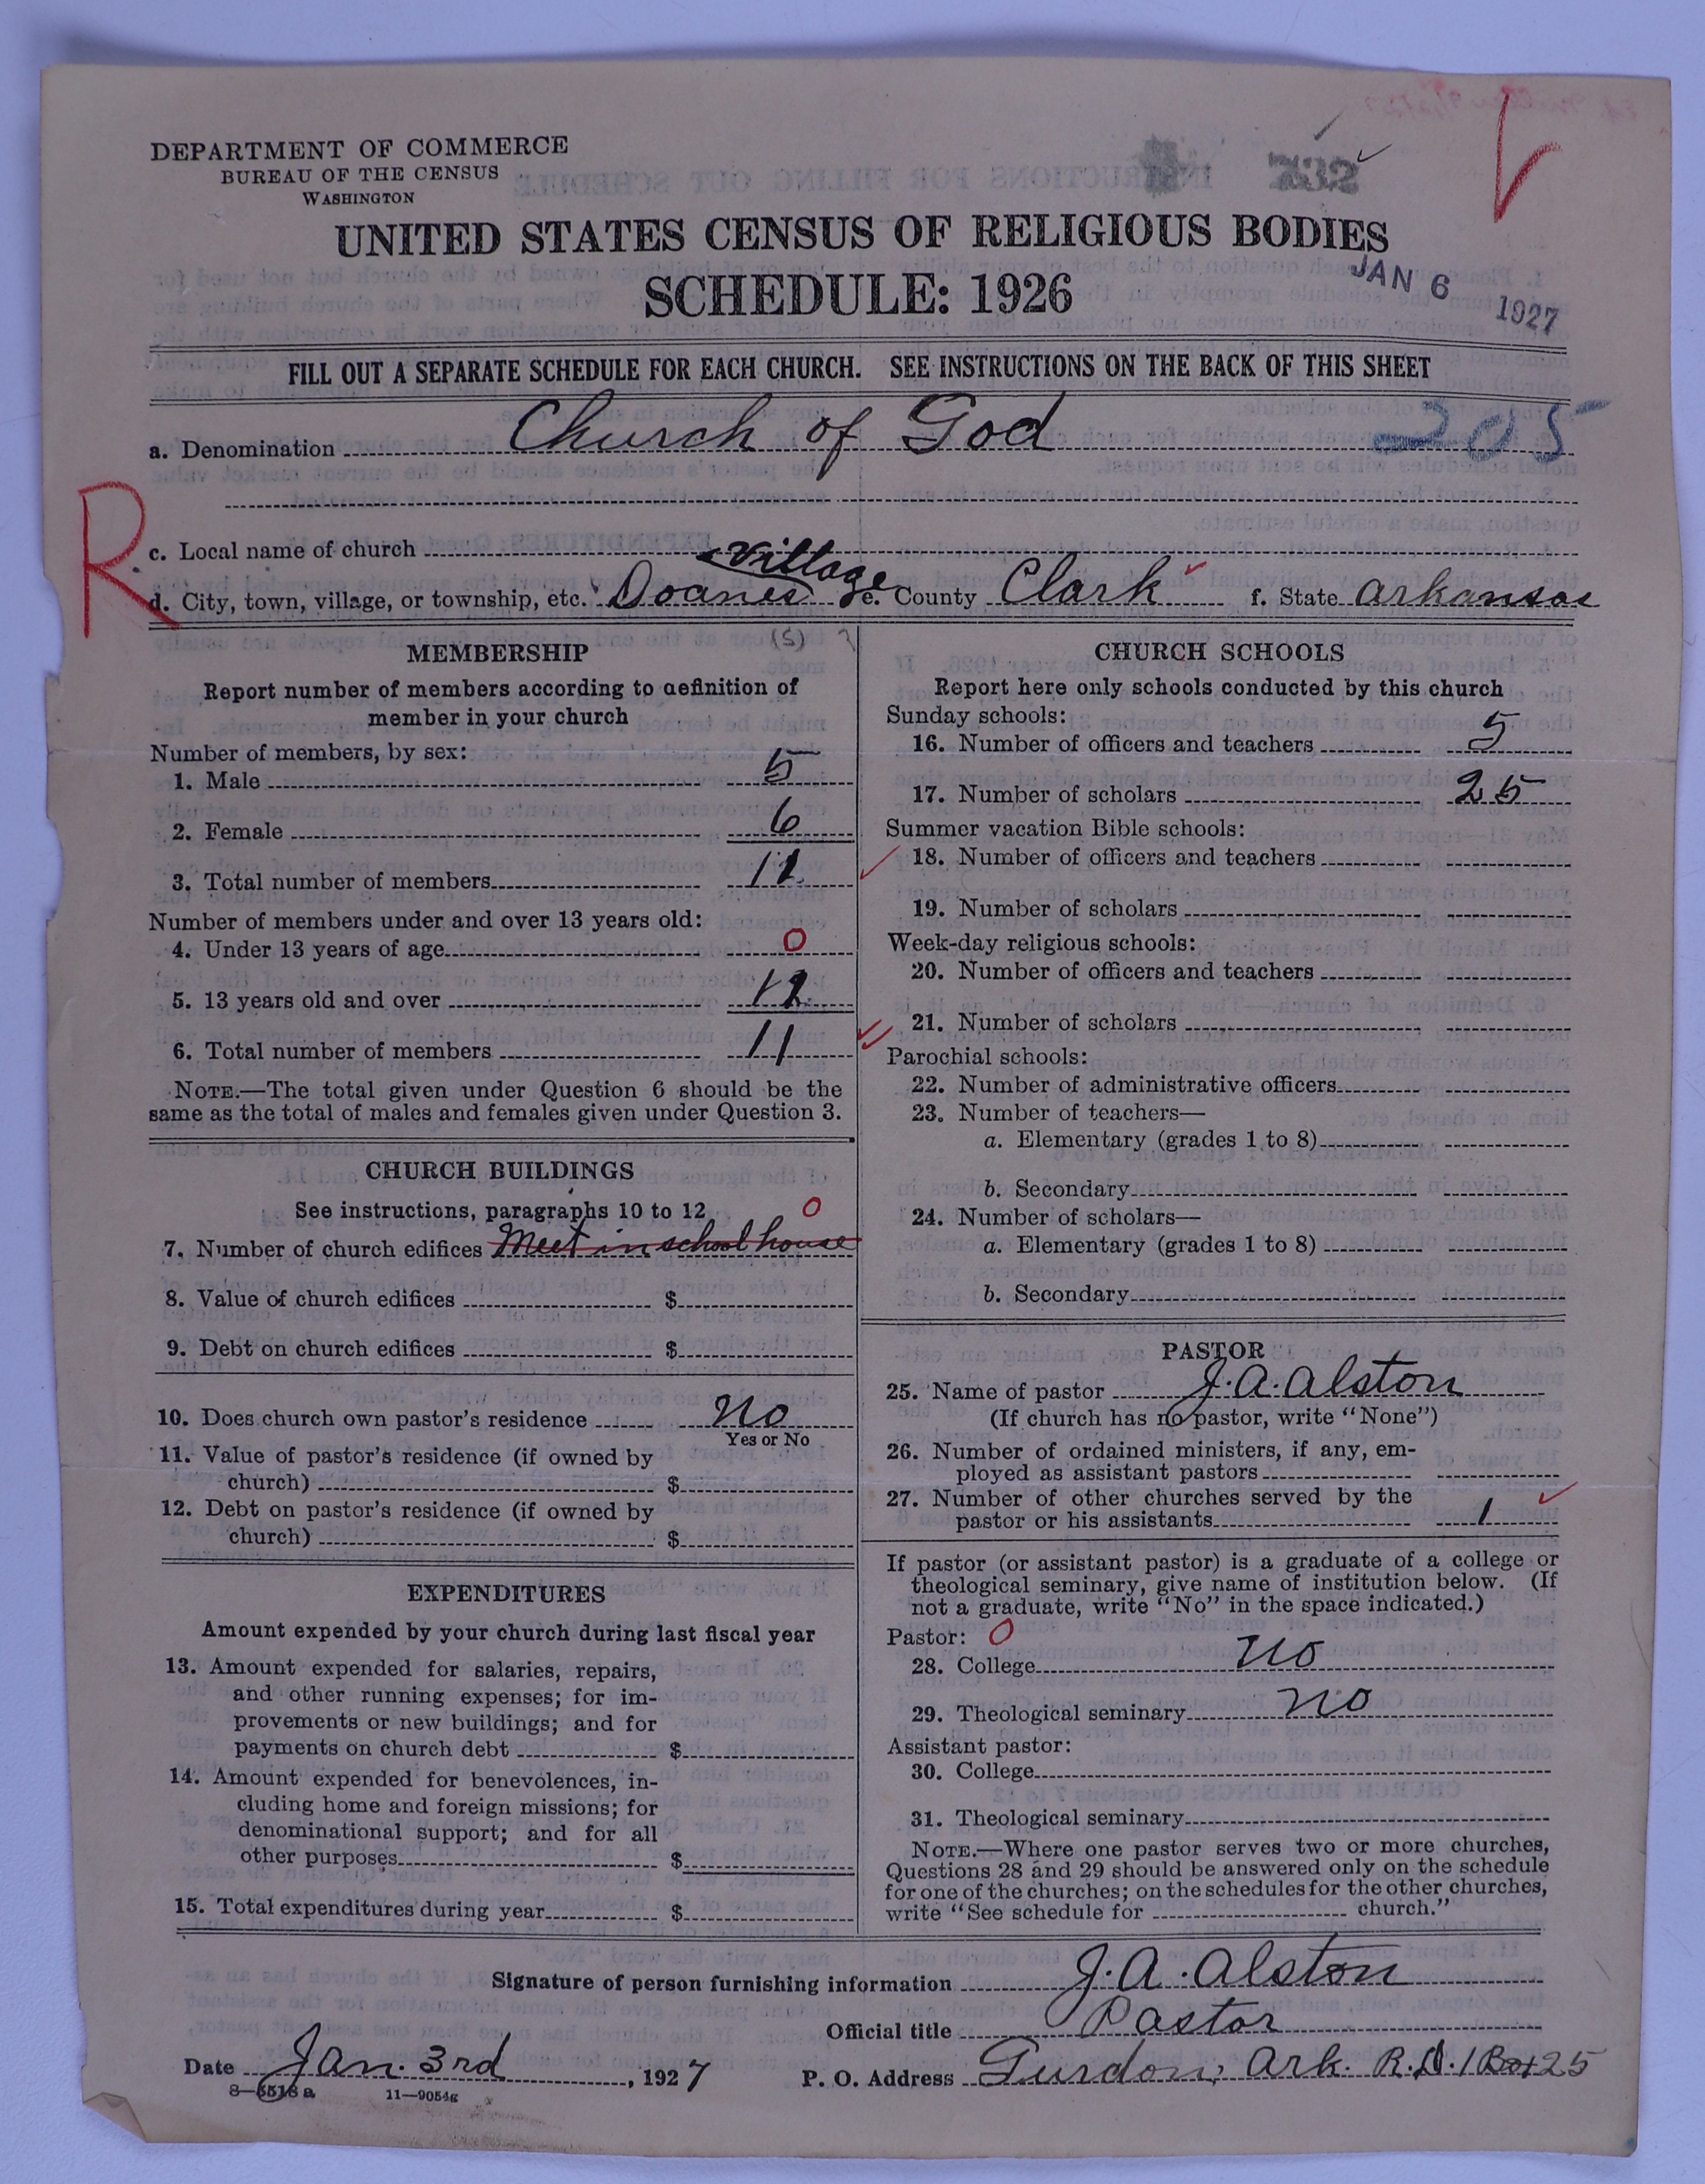 DEPARTMENT OF COMMERCE
BUREAU OF THE CENSUS
WASHINGTON
732
UNITED STATES CENSUS OF RELIGIOUS BODIES
SCHEDULE: 1926
JAN 6 1927
FILL OUT A SEPARATE SCHEDULE FOR EACH CHURCH. SEE INSTRUCTIONS ON THE BACK OF THIS SHEET
a. Denomination Church of God 205
R
c. Local name of church
Village
d. City, town, village, or township, etc. Doanes e. County Clark f. State Arkansas
(S) ?
MEMBERSHIP
Report number of members according to definition of
member in your church
Number of members, by sex:
1. Male 5
2. Female 6
3. Total number of members 11
Number of members under and over 13 years old:
4. Under 13 years of age 0
5. 13 years old and over
6. Total number of members 11
NOTE.—The total given under Question 6 should be the
same as the total of males and females given under Question 3.
CHURCH BUILDINGS
See instructions, paragraphs 10 to 12 0
7. Number of church edifices Meet in school house
8. Value of church edifices $
9. Debt on church edifices $
10. Does church own pastor's residence No
Yes or No
11. Value of pastor's residence (if owned by
church) $
12. Debt on pastor's residence (if owned by
church) $
EXPENDITURES
Amount expended by your church during last fiscal year
13. Amount expended for salaries, repairs,
and other running expenses; for im-
provements or new buildings; and for
payments on church debt $
14. Amount expended for benevolences, in-
cluding home and foreign missions; for
denominational support; and for all
other purposes $
15. Total expenditures during year $
CHURCH SCHOOLS
Report here only schools conducted by this church
Sunday schools:
16. Number of officers and teachers 5
17. Number of scholars 25
Summer vacation Bible schools:
18. Number of officers and teachers
19. Number of scholars
Week-day religious schools:
20. Number of officers and teachers
21. Number of scholars
Parochial schools:
22. Number of administrative officers
23. Number of teachers—
a. Elementary (grades 1 to 8)
b. Secondary
24. Number of scholars—
a. Elementary (grades 1 to 8)
b. Secondary
PASTOR
25. Name of pastor J. A. Alston
(If church has no pastor, write "None")
26. Number of ordained ministers, if any, em-
ployed as assistant pastors
27. Number of other churches served by the
pastor or his assistants 1
If pastor (or assistant pastor) is a graduate of a college or
theological seminary, give name of institution below. (If
not a graduate, write "No" in the space indicated.)
Pastor: 0
28. College No
29. Theological seminary No
Assistant pastor:
30. College
31. Theological seminary
NOTE.—Where one pastor serves two or more churches,
Questions 28 and 29 should be answered only on the schedule
for one of the churches; on the schedules for the other churches,
write "See schedule for church."
Signature of person furnishing information J. A. Alston
Official title Pastor
Date Jan. 3rd, 1927 P. O. Address Gurdon, Ark. R.D. 1 Box 25
8—5518 a 11—9054g